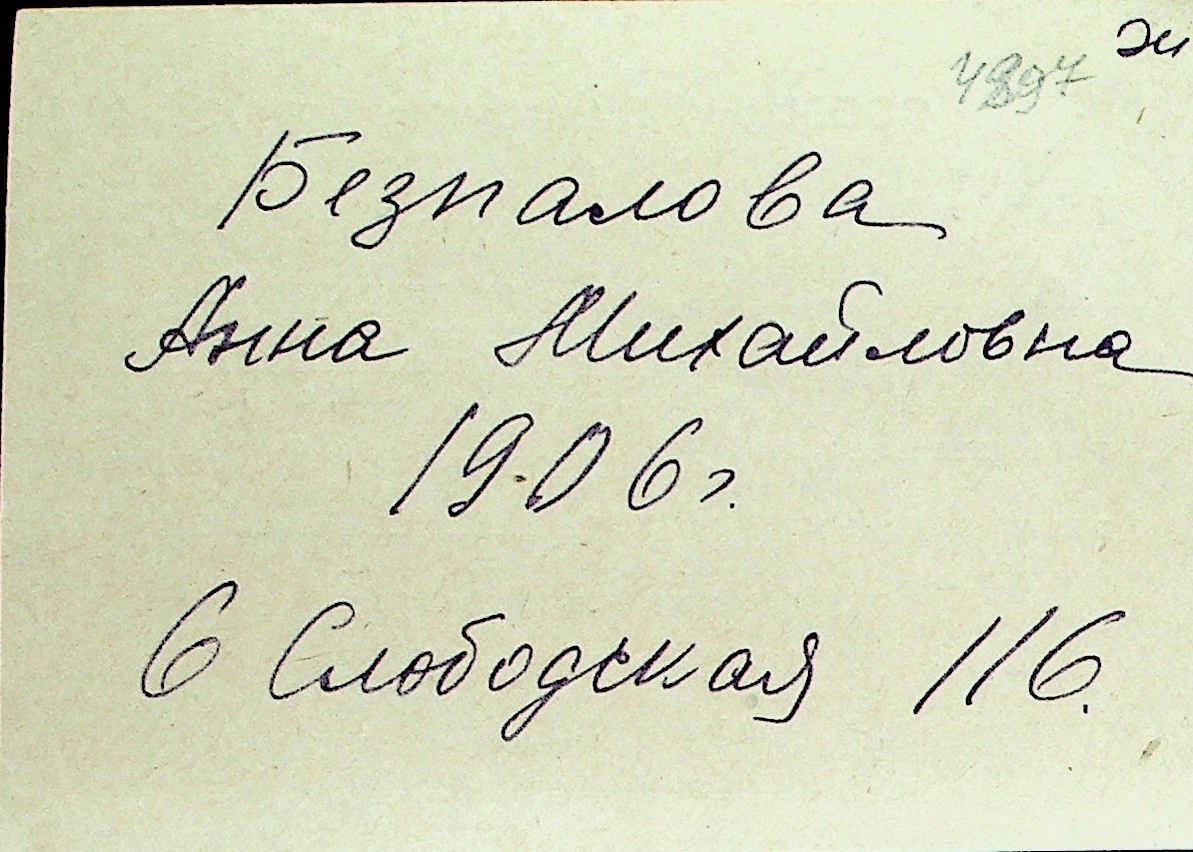 Безпалова
Анна Михайловна
1906 г.
6 Слободская 116.